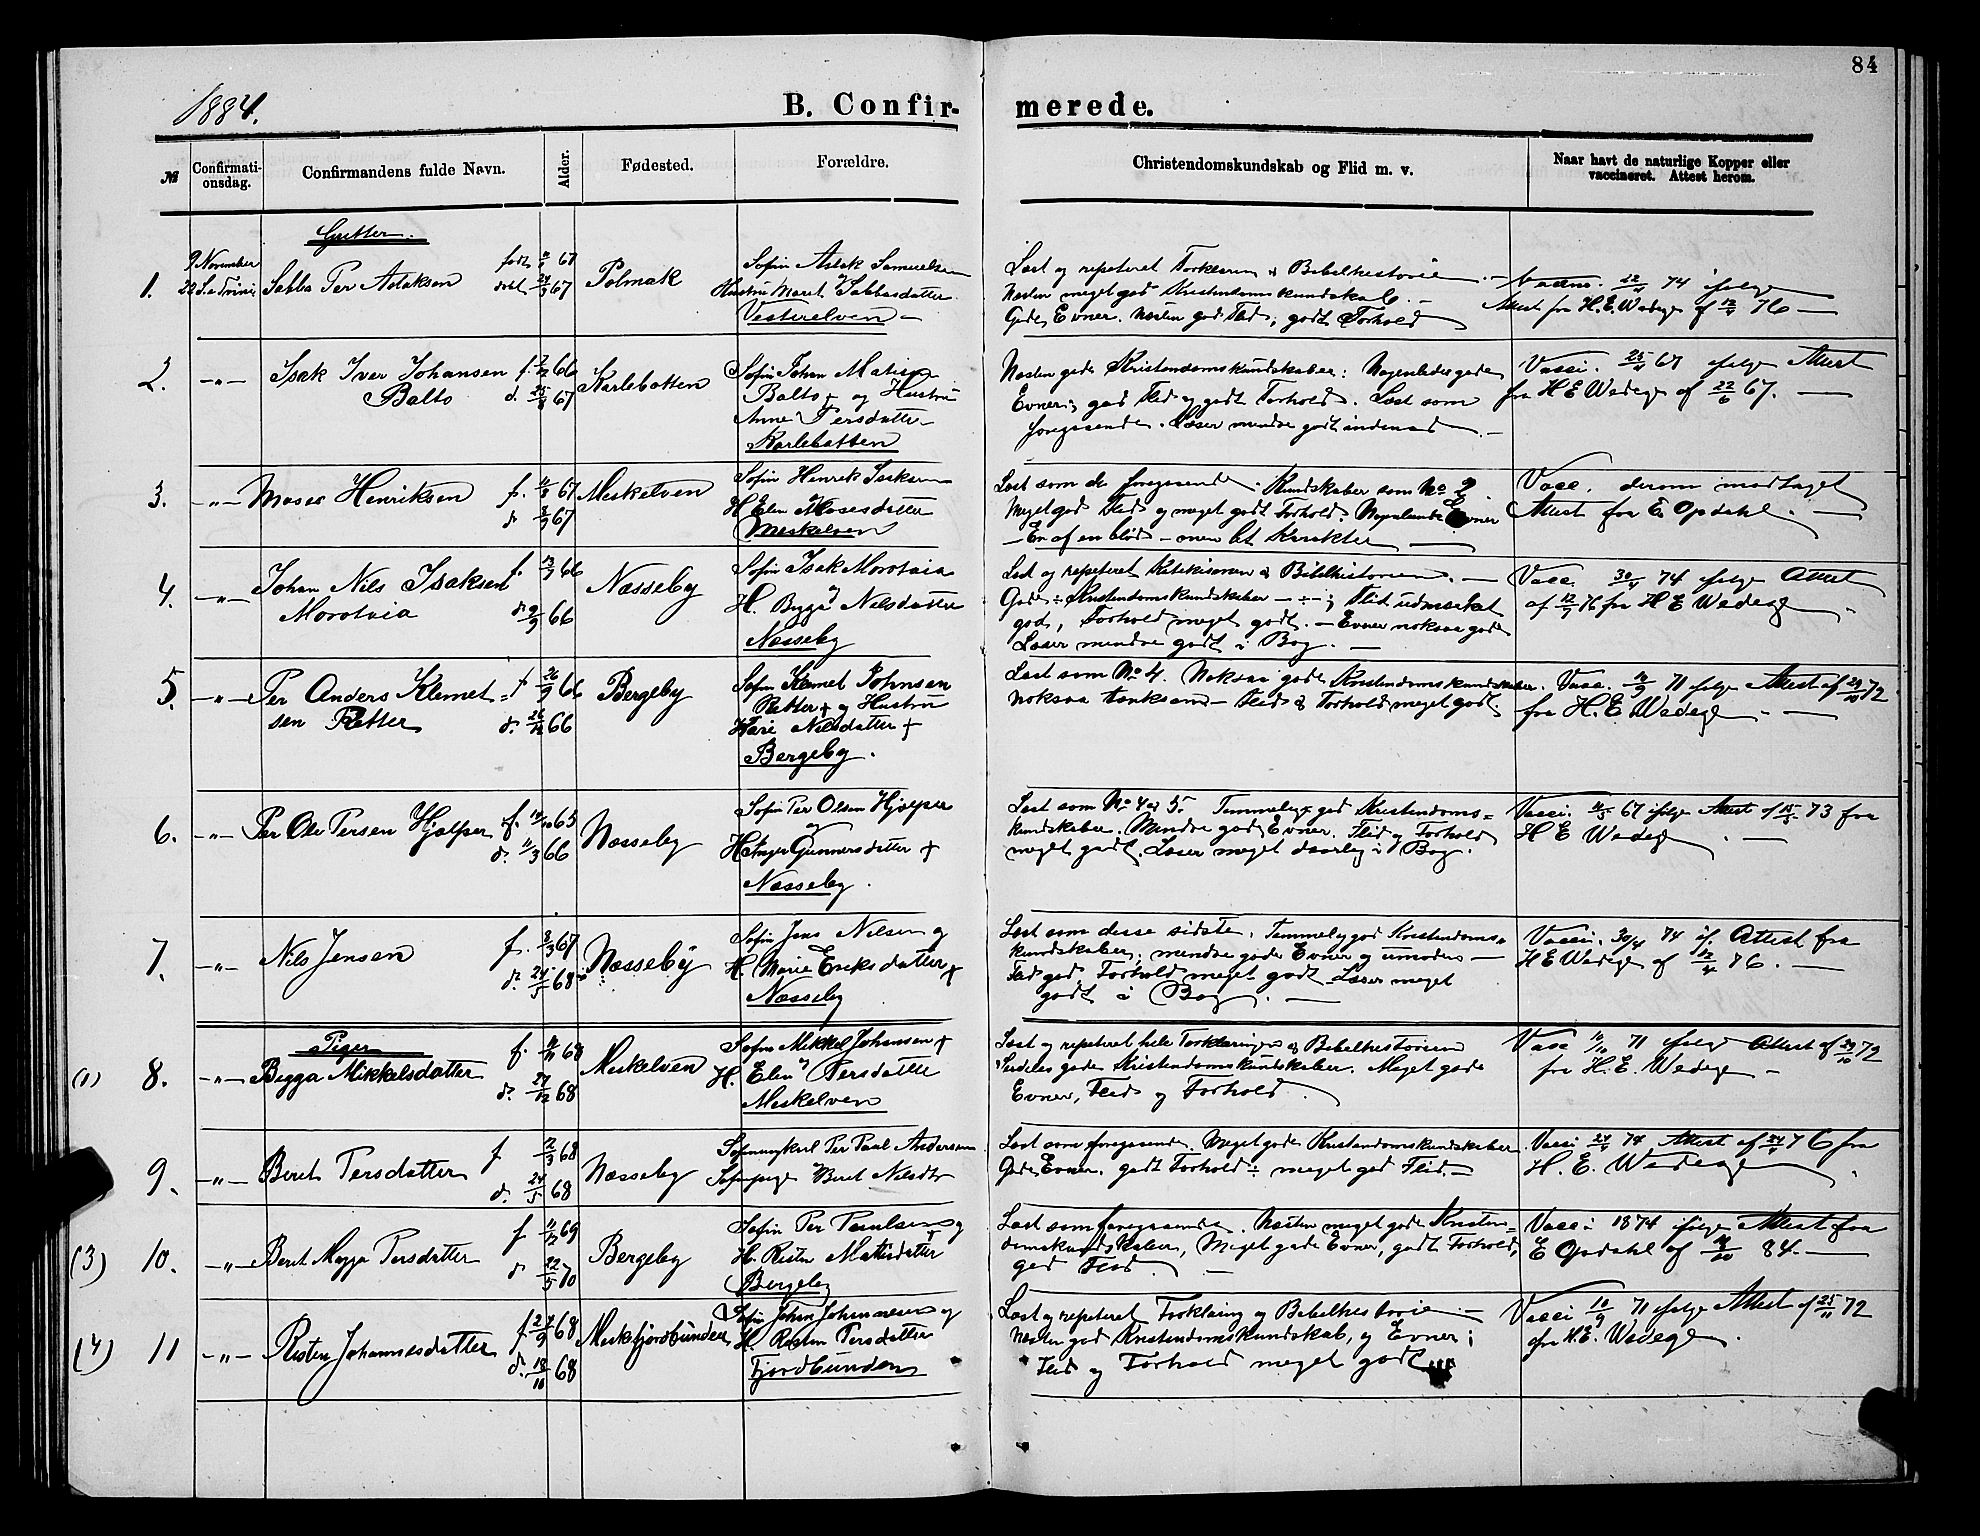 84
1884.
B. Confirmerede.
№ Confirmationsdag. Confirmandens fulde Navn. Alder. Fødested. Forældre. Christendomskundskab og Flid m. v. Naar havt de naturlige Kopper eller vaccineret. Attest herom.
Gutter.
1. 9 November 22 S. e. Trinit Sabba Per Aslaksen født 67 døbt 67 Polmak
Sofin Aslak Samuelsen
og
Hustru Maret Sabbasdatter
Vesterelven
Læst og repeteret Forklaren & Bibelhistorie
Næsten meget god Kristendomskundskab.
Gode Evner. Næsten god Flid, godt Forhold
Vaccine. 74 ifølge
Attest fra H. E. Wadege af 76
2. Isak Iver Johansen f. 66
Balto d. 67
Karlebotten
Sofin Johan Matis
Balto + og Hustru
Anne Persdatter
Karlebotten
Næsten gode Kristendomskundskaber: Nogenledes gode
Evner; god Flid og godt Forhold. Læst som
foregaaende. Læser mindre godt indenad.
Vacci. 67 ifølge Attest
fra H E Wadege af 22/6 67.
3. Moses Henriksen f. 67
d. 67
Meskelven
Sofin Henrik Isaksen
H. Elen Mosesdatter
Meskelven
Læst som de foregaaende. Kundskaber som No 2
Meget god Flid og meget godt Forhold. Evner
En af en blød - men let Karakter
Vacc. derom modtaget
Attest fra E. Opdahl.
4. Johan Nils Isaksen f. 66
Morotaia d. 9/9 66
Næsseby
Sofin Isak Morotaia
og
H. Bygga Nilsdatter
Næsseby
Læst og repeteret & Bibelhistorien.
Gode Kristendomskundskaber; Flid udmærket
god, Forhold meget godt. - Evner noksaa gode
Læser mindre godt i Bog.
Vacc. 30/4 74 ifølge Attest
af 76 fra H E Wadege
5. Per Anders Klemet= f 26/9 66
sen Retter d. 66
Bergeby
Sofin Klemet Johnsen
Retter + og Hustru
Kari Nilsdatter +
Bergeby.
Læst som No 4. Noksaa gode Kristendomskundskaber.
noksaa tænksom - Flid & Forhold meget godt.
Vacc. 71 ifølge Attest af 29/10 72
fra H. E Wadege
6. Per Ole Persen Hjelper f. 65
d. 11/3 66
Næsseby
Sofin Per Olsen Hjelper
og
H. Inger Gunnersdatter +
Næsseby.
Læst som No 4 og 5. Temmelig god Kristendoms=
kundskaber. Mindre gode Evner. Flid og Forhold
meget godt. Læser meget daarlig i Bog.
Vacci. 67 ifølge Attest af 73 fra
H E Wadege
7. Nils Jensen f. 8/3 67
d. 24/5 68
Næsseby
Sofin Jens Nilsen og
H. Marie Eriksdatter +
Næsseby
Læst som disse sidste. Temmelig god Kristendoms=
kundskaber; mindre gode Evner og umoden
Flid god, Forhold meget godt. Læser meget
godt i Bog.
Vacci. 30/4 74 if. Attest fra
H E Wadege af 76.
Piger
(1) 8. Bigga Mikkelsdatter f. 68
d. 27/12 68
Meskelven
Sofin Mikkel Johansen +
og
H. Elen Persdatter
Meskelven
Læst og repeteret hele Forklaringen & Bibelhistorien
Særdeles gode Kristendomskundskaber. Meget gode
Evner, Flid og Forhold.
Vacc 71 ifølge Attest af 29/10 72
fra H. E. Wadege
9. Beret Persdatter f 68
d. 24/5 68
Næsseby
Sofinungkarl Per Paul Andersen
Sofinpige Beret Nilsdtr
Læst som foregaaende. Meget gode Kristendomskundskaber
Gode Evner. godt Forhold; meget god Flid.
Vacci 74 Attest af 76 fra
H. E. Wadege
(3) 10. Beret Magga Persdatter f 69
d 22/5 70
Bergeby
Sofin Per Paulsen og
H. Risten Matisdatter
Bergeby
Læst som foregaaende. Næsten meget gode Kristen=
domskundskaber, Meget gode Evner, godt Forhold,
god Flid.
Vacci 1874 ifølge Attest fra
E Opdahl af 84.
(4) 11 Risten Johannesdatter f. 68
d. 68
Meskfjordbunden
Sofin Johan Johannesen og
H. Risten Persdatter
Fjordbunden
Læst og repeteret Forklaring og Bibelhistorie
Næsten god Kristendomskundskab, og Evner;
Flid og Forhold meget godt
Vacci 10/9 71 ifølge Attest af 25/11 72
fra H. E. Wadege.